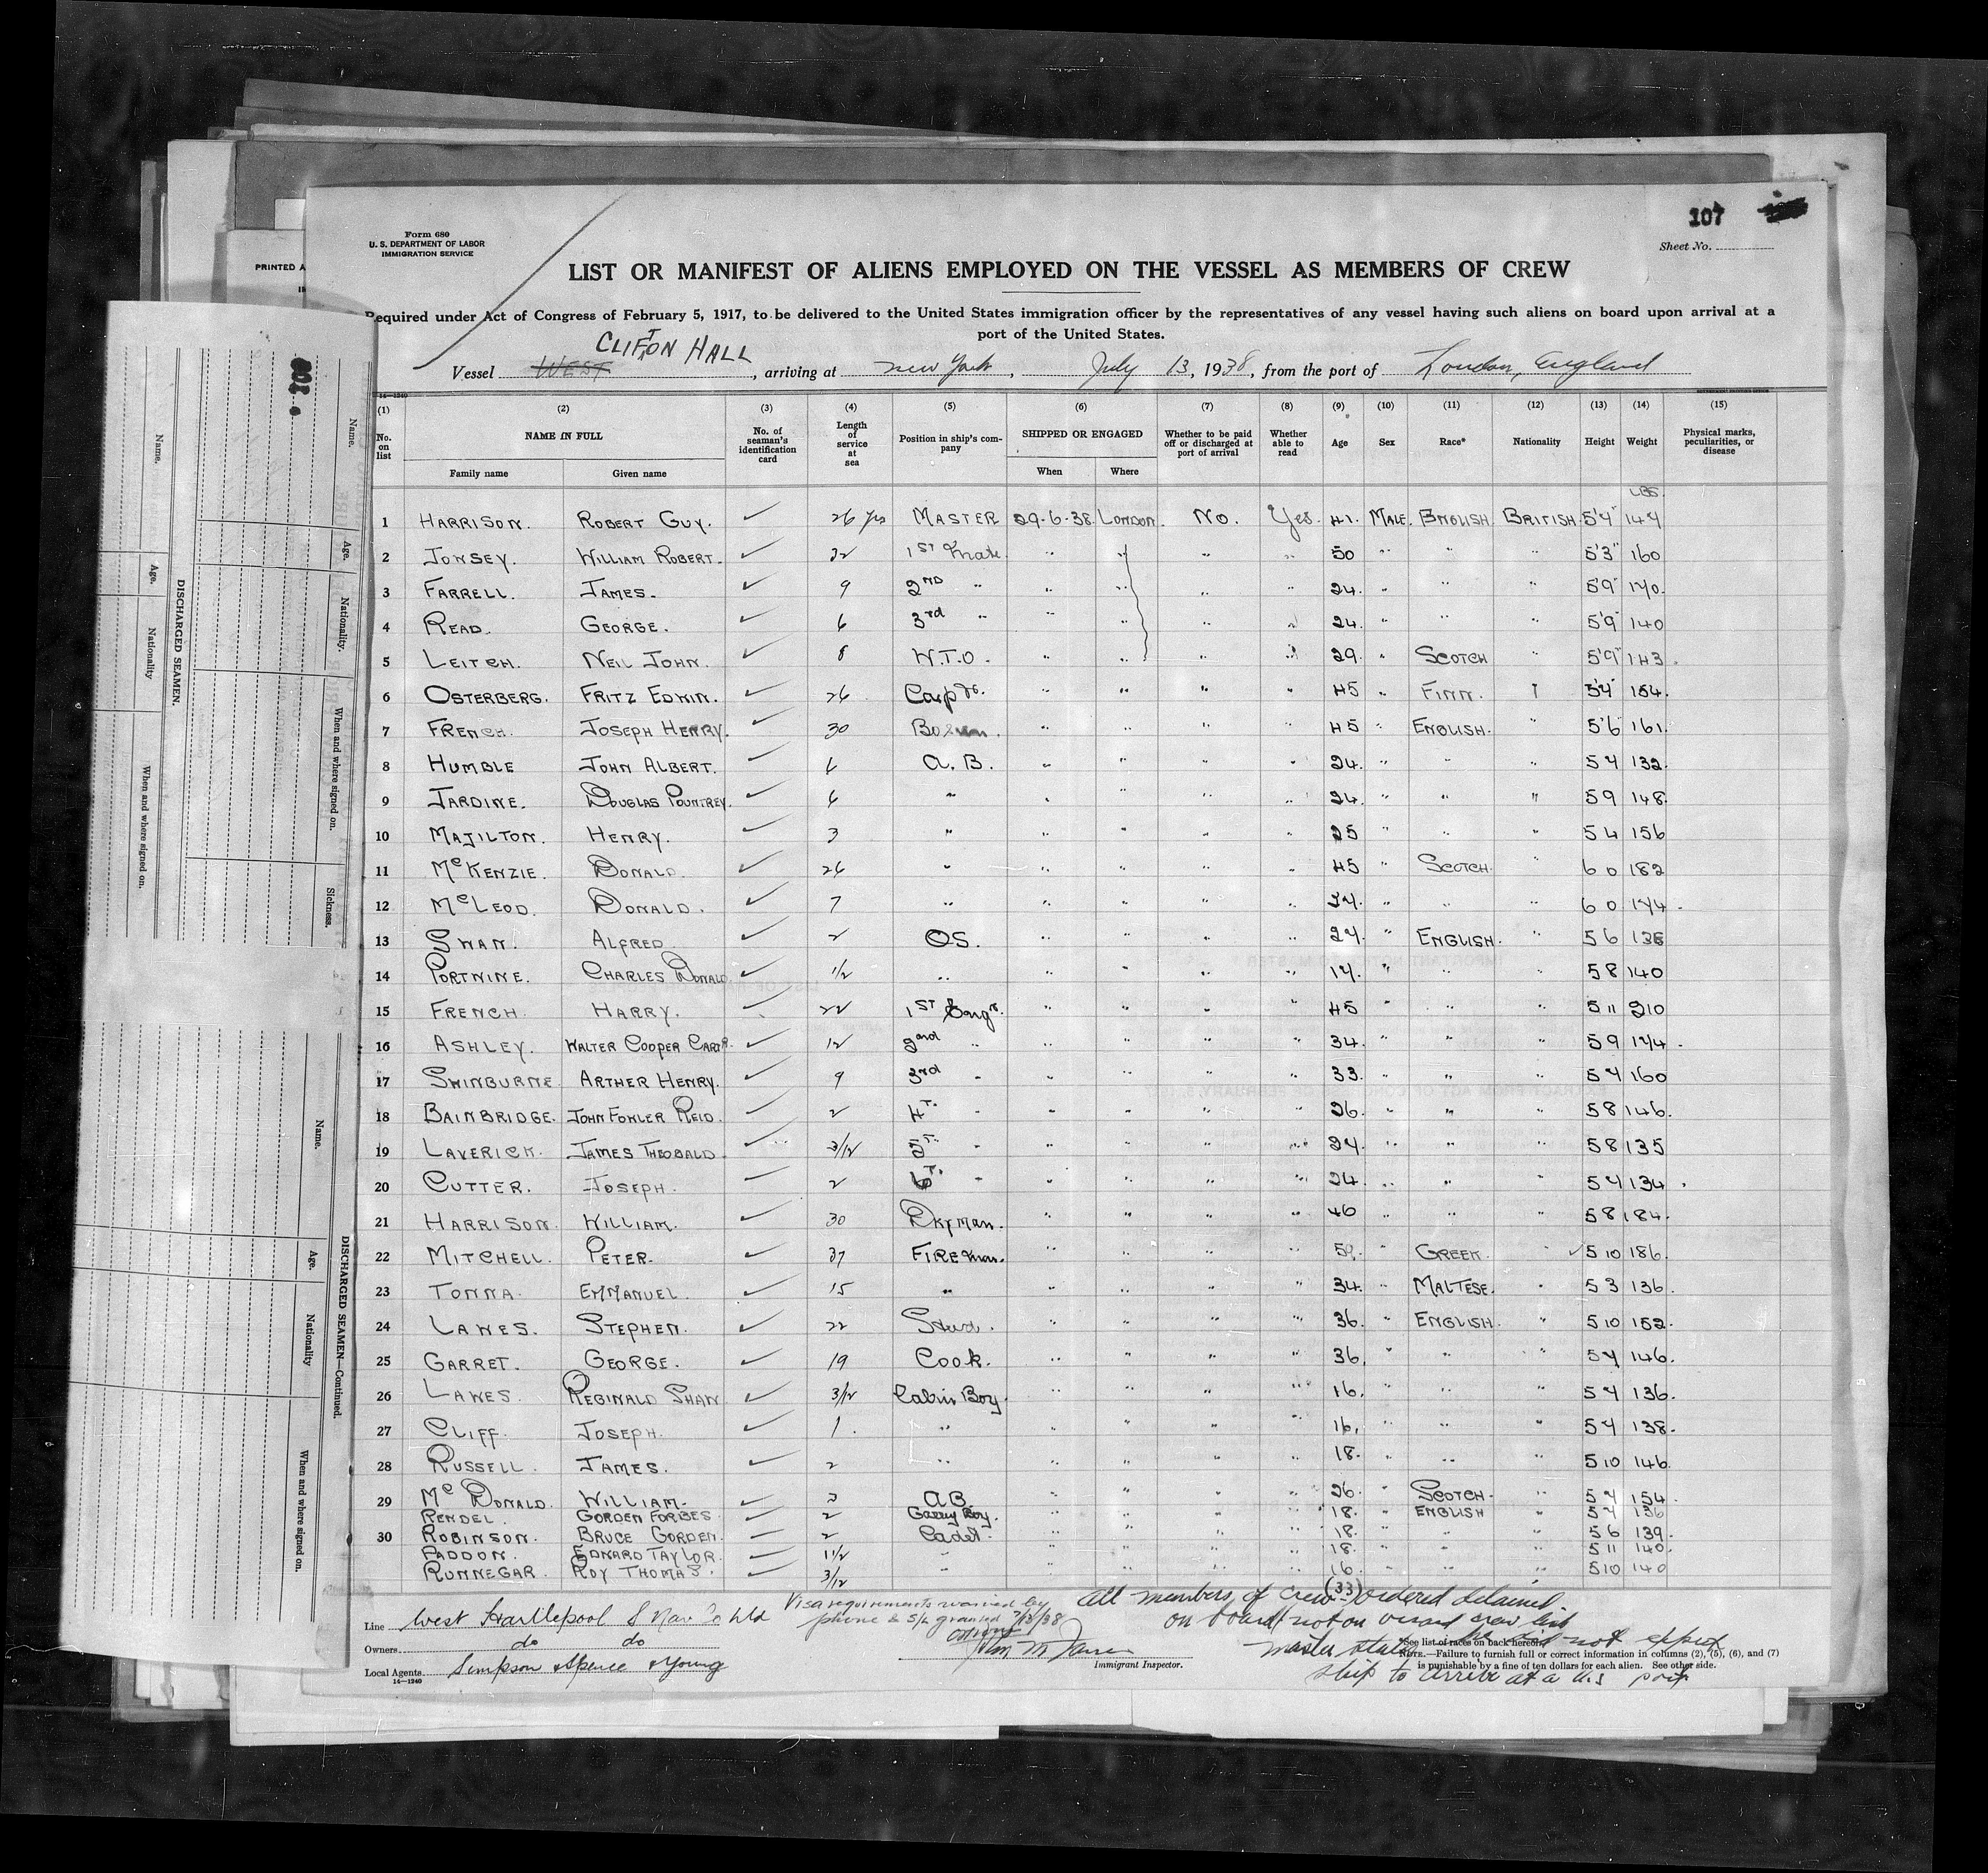 107
Sheet No.
Form 680
U. S. DEPARTMENT OF LABOR
IMMIGRATION SERVICE
PRINTED A
LIST OR MANIFEST OF ALIENS EMPLOYED ON THE VESSEL AS MEMBERS OF CREW
Required under Act of Congress of February 5, 1917, to be delivered to the United States immigration officer by the representatives of any vessel having such aliens on board upon arrival at a
port of the United States.
CLIFTON HALL
Vessel WEST, arriving at New York, July 13, 1938, from the port of London, England
14—1240
(1) (2) (3) (4) (5) (6) (7) (8) (9) (10) (11) (12) (13) (14) (15)
No. on list NAME IN FULL No. of seaman's identification card Length of service at sea Position in ship's company SHIPPED OR ENGAGED Whether to be paid off or discharged at port of arrival Whether able to read Age Sex Race* Nationality Height Weight Physical marks, peculiarities, or disease
Family name Given name When Where
LBS.
1 HARRISON. ROBERT GUY. ✓ 26 yrs MASTER 29-6-38 LONDON. NO. Yes. 41. MALE. ENGLISH. BRITISH. 5'4" 144
2 JONSEY. WILLIAM ROBERT. ✓ 32 1ST Mate. " " " " 50 " " " 5'3" 160
3 FARRELL. JAMES. ✓ 9 2ND " " " " " 24. " " " 5'9" 170.
4 READ. GEORGE. ✓ 6 3rd " " " " " 24. " " " 5'9" 140
5 LEITCH. NEIL JOHN. ✓ 8 W.T.O. " " " " 29. " SCOTCH " 5'9" 143.
6 OSTERBERG. FRITZ EDWIN. ✓ 26 Carptr. " " " " 45 " FINN. " 5'4" 154.
7 FRENCH. JOSEPH HENRY. ✓ 30 Bosun. " " " " 45 " ENGLISH. " 5'6" 161.
8 HUMBLE JOHN ALBERT. ✓ 6 A.B. " " " " 24. " " " 5 4 132.
9 JARDINE. DOUGLAS POUNTREY. ✓ 6 " " " " " 24. " " " 5 9 148.
10 MAJILTON. HENRY. ✓ 3 " " " " " 25 " " " 5 4 156
11 McKENZIE. DONALD. ✓ 26 " " " " " 45 " SCOTCH. " 6 0 182
12 McLEOD. DONALD. ✓ 7 " " " " " 34. " " " 6 0 174.
13 SWAN. ALFRED. ✓ 2 OS. " " " " 27. " ENGLISH. " 5 6 136
14 PORTNINE. CHARLES DONALD ✓ 1/2 " " " " " 17. " " " 5 8 140
15 FRENCH. HARRY. ✓ 22 1ST Engr. " " " " 45 " " " 5 11 210
16 ASHLEY. WALTER COOPER CARTR. ✓ 12 2nd " " " " " 34. " " " 5 9 174.
17 SWINBURNE. ARTHER HENRY. ✓ 9 3rd " " " " " 33. " " " 5 7 160
18 BAINBRIDGE. JOHN FOWLER REID. ✓ 2 4T. " " " " " 26. " " " 5 8 146.
19 LAVERICK. JAMES THEOBALD. ✓ 3/12 5T. " " " " " 24. " " " 5 8 135
20 CUTTER. JOSEPH. ✓ 2 6T. " " " " " 24. " " " 5 7 134.
21 HARRISON. WILLIAM. ✓ 30 Dkyman. " " " " 46 " " " 5 8 184.
22 MITCHELL. PETER. ✓ 37 FIREman. " " " " 59. " GREEK. " ✓ 5 10 186.
23 TONNA. EMMANUEL. ✓ 15 " " " " " 34. " MALTESE. " 5 3 136.
24 LAWES. STEPHEN. ✓ 22 Stewd. " " " " 36. " ENGLISH. " 5 10 152.
25 GARRET. GEORGE. ✓ 19 Cook. " " " " 36. " " " 5 7 146.
26 LAWES. REGINALD SHAW ✓ 3/12 Cabin Boy. " " " " 16. " " " 5 7 136.
27 CLIFF. JOSEPH. ✓ 1. " " " " " 16. " " " 5 7 138.
28 RUSSELL. JAMES. ✓ 2 " " " " " 18. " " " 5 10 146.
29 McDONALD. WILLIAM. ✓ 2 A.B. " " " " 26. " SCOTCH. " 5 7 154.
RENDEL. GORDEN FORBES ✓ 2 Galley Boy. " " " " 18. " ENGLISH " 5 7 136
30 ROBINSON. BRUCE GORDEN. ✓ 2 Cadet. " " " " 18. " " " 5 6 139.
PADDON. EDWARD TAYLOR. ✓ 1 1/2 " " " " " 18. " " " 5 11 140.
RUNNEGAR. ROY THOMAS. ✓ 3/12 " " " " " 16. " " " 5 10 140
Line West Hartlepool S Nav Co Ltd
Owners do do
Local Agents Simpson Spence & Young
14—1240
Visa requirements waived by
phone & S/L granted 7/13/38
Immigrant Inspector.
All members of crew (33) ordered detained
on board not on visaed crew list
master states he did not expect
ship to arrive at a U.S port
*See list of races on back hereof.
NOTE.—Failure to furnish full or correct information in columns (2), (5), (6), and (7)
is punishable by a fine of ten dollars for each alien. See other side.
DISCHARGED SEAMEN.
Name. Age. Nationality. When and where signed on. Sickness.
Name. Age. Nationality When and where signed on.
DISCHARGED SEAMEN—Continued.
Name. Age. Nationality When and where signed on.